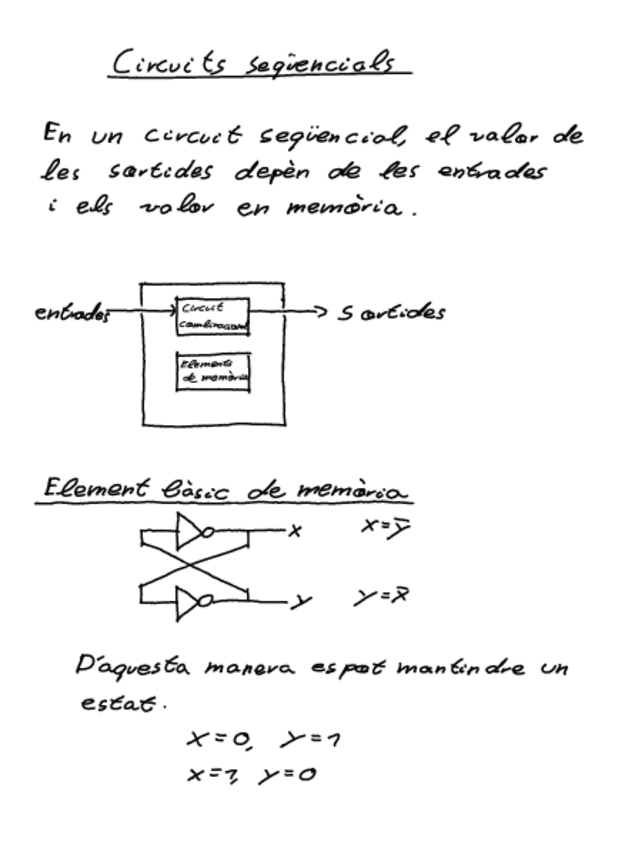 Circuits seqüencials
En un circuit seqüencial, el valor de
les sortides depèn de les entrades
i els valor en memòria.
entrades
Circuit
combinacional
Sortides
Elements
de memòria
Element bàsic de memòria
x
x=y̅
y
y=x̅
D'aquesta manera es pot mantindre un
estat.
x=0, y=1
x=1, y=0